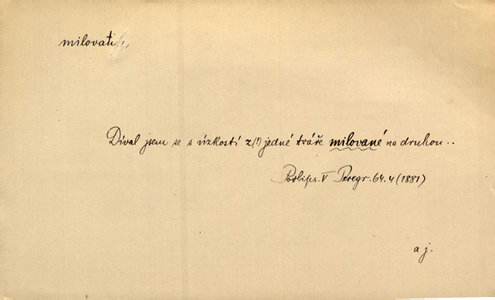 milovati
Díval jsem se s úzkostí z(!) jedné tváře milované na druhou..
64.4 (1881)
a j.